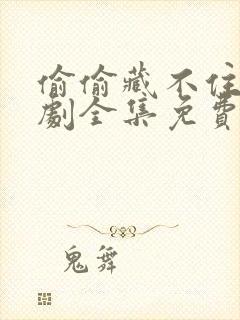 偷偷藏不住
劇全集免費
鬼舞